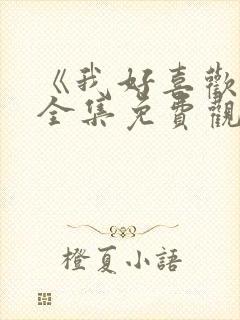 《我好喜歡
全集免費觀
橙夏小語